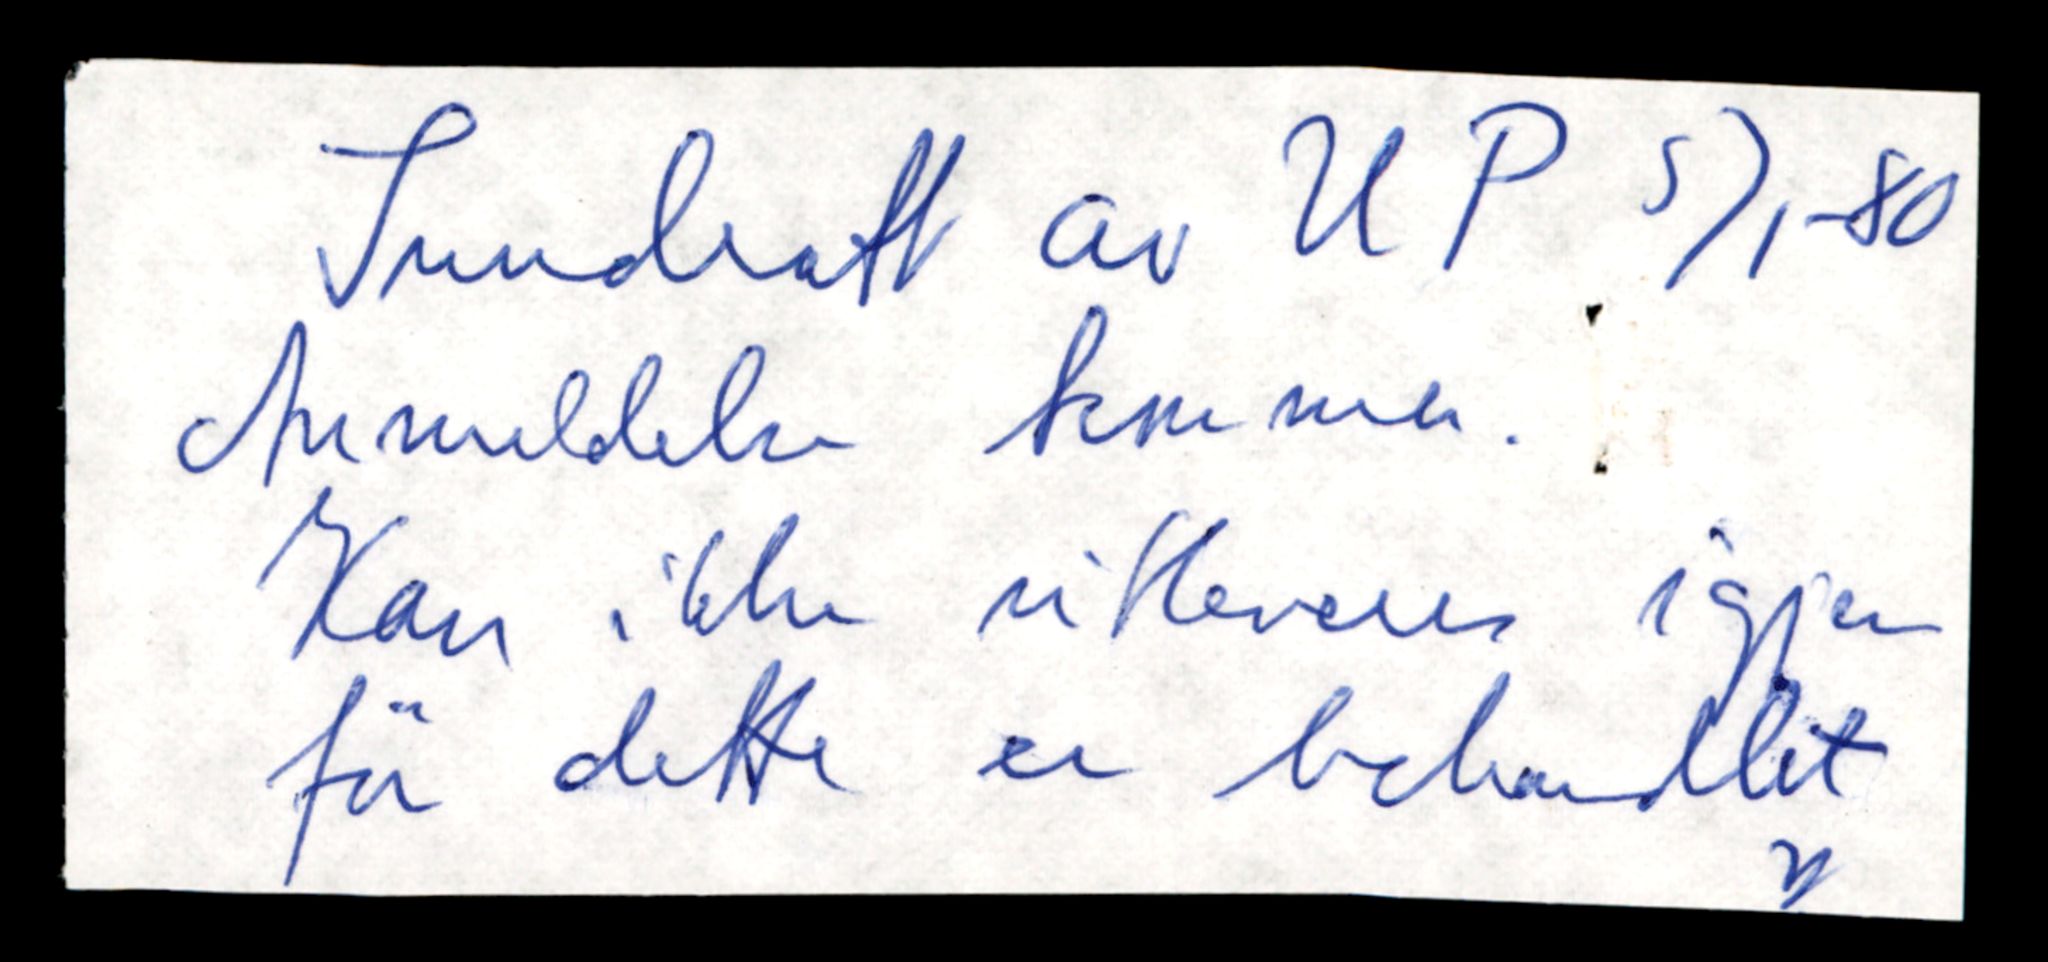 Inndratt av UP 5/1-80
Anmeldelse kommer.
Kan ikke utleveres igjen
før dette er behandlet